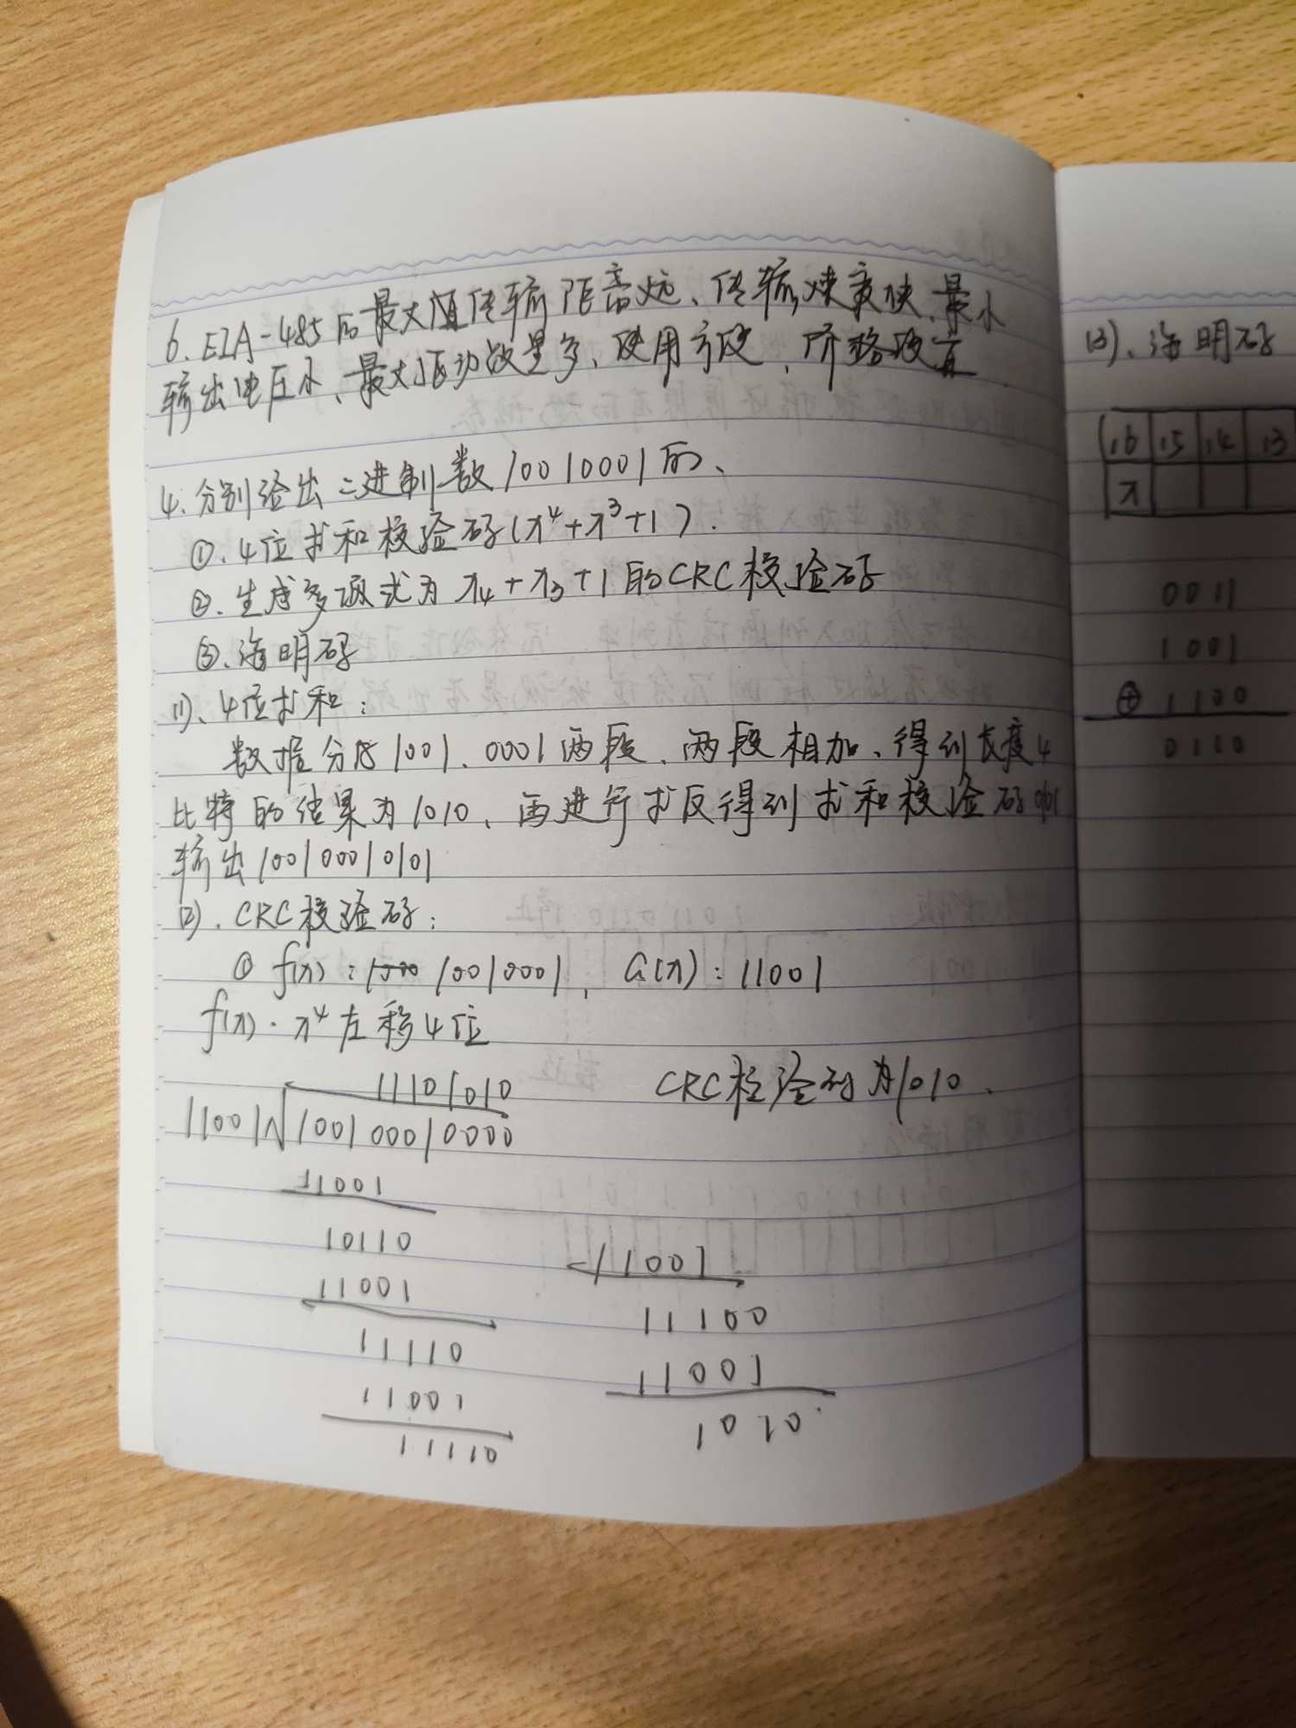 6. EIA-485的最大值传输距离远、传输速度快、最小
输出电压小、最大驱动数量多、使用方便、价格改直
4.分别给出二进制数10010001的、
①.4位求和校验码(x⁴+x³+1).
②.生成多项式为x₄+x₃+1的CRC校验码
③.海明码
1)、4位求和:
数据分成1001、0001两段、两段相加、得到长度4
比特的结果为1010、再进行求反得到求和校验码0101
输出100100010101
(2).CRC校验码:
① f(x): 10010001, G(x): 11001
f(x)·x⁴左移4位
11101010
11001√100100010000
11001
10110
11001
11110
11001
11110
CRC校验码为1010.
-11001
11100
11001
1010.
(3)、海明码
16 15 14 13
x
0011
1001
⊕ 1100
0110